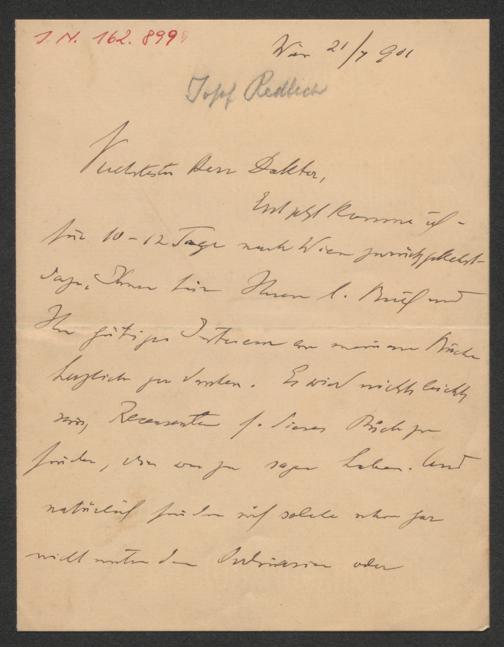 I. N. 162.899
Wien 21/7 901
Josef Redlich
Verehrtester Herr Doktor,
Erst jetzt komme ich –
für 10–12 Tage nach Wien zurückgekehrt –
dazu, Ihnen für Ihren l. Brief und
Ihr gütiges Interesse an meinem Buche
herzlich zu danken. Es wird nicht leicht
sein, Recensenten f. dieses Buch zu
finden, die was zu sagen haben. Und
natürlich finden sich solche schon gar
nicht unter den oder